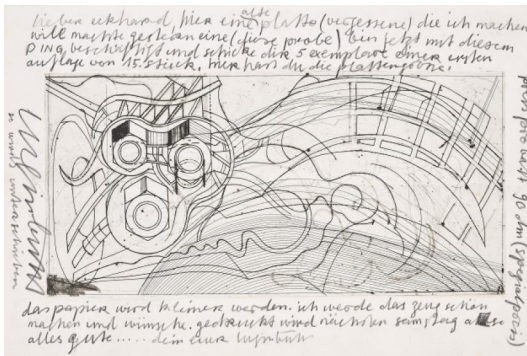 lieber eckhard, hier eine alte platte (vergessene) die ich machen
will machte gestern eine (diese probe) bin jetzt mit diesem
DING beschäftigt und schicke dir 5 exemplare einer ersten
auflage von 15 stück. hier hast du die plattengröße.
so wird unterschrieben
das papier wird kleiner werden. ich werde das zeug schon
machen und wünsche. gedruckt wird nächsten samstag also
alles gute..... dein euer